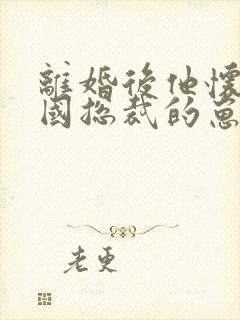 離婚後他懷
國總裁的崽
老更